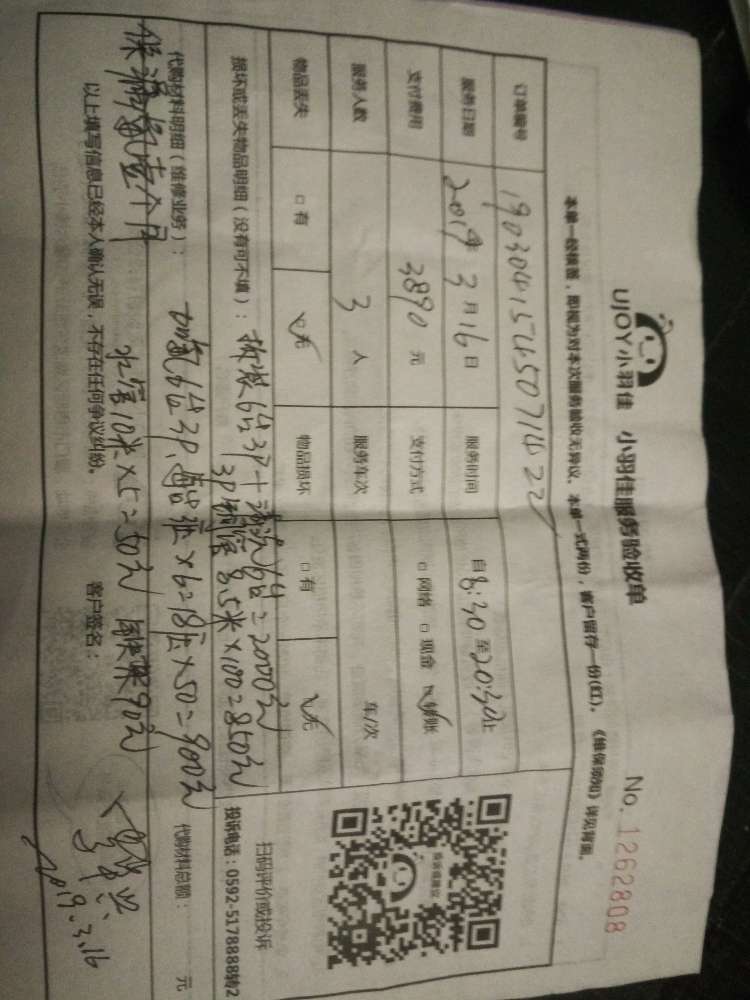 UJOY小羽佳 小羽佳服务验收单 No. 1262808
本单一经核签，即视为对本次服务验收无异议。本单一式两份，客户留存一份(红)。《维保须知》详见背面。
订单编号
服务日期 2019年3月16日 服务时间 自8:30至20:30止
支付费用 3890元 支付方式 □网络 □现金 ☑转账
服务人数 3人 服务车次 车/次
物品丢失 □有 ☑无 物品损坏 □有 ☑无
扫码评价或投诉
投诉电话：0592-5178888转2
损坏或丢失物品明细（没有可不填）： 拆装6台3P+清洗6台=2000元
3P铜管8.5米×100=850元
代购材料明细（维修业务）： 加氟6台3P，每台 ×6=18压×50=900元 代购材料总额： 元
保漏氟壹个月 水管10米×5=50元 90元
以上填写信息已经本人确认无误，不存在任何争议纠纷。 客户签名：
2019.3.16